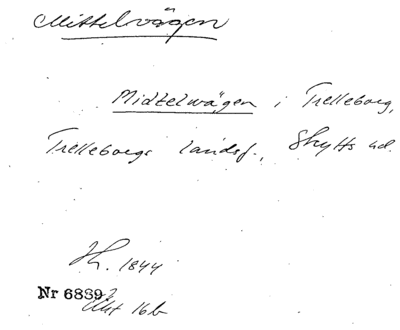 Mittelvägen
Midtelwägen i Trelleborg,
Trelleborgs landsf., Skytts hd.
H. 1844
Nr 6839?
Akt 16b